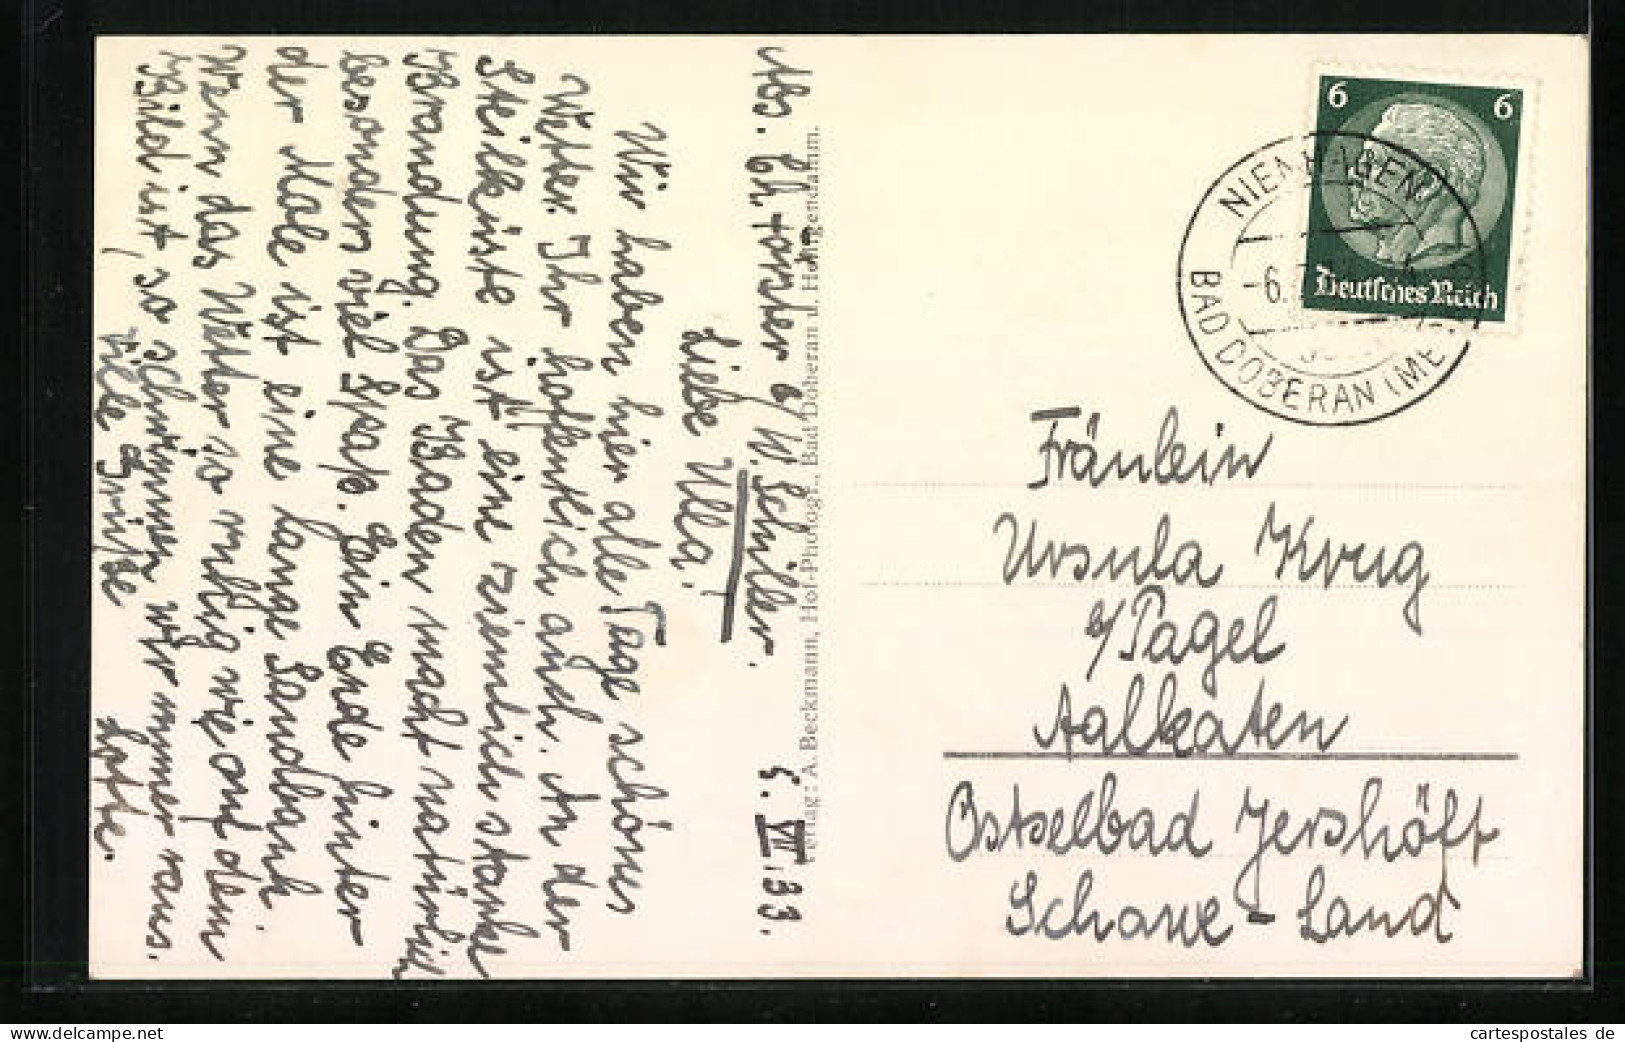 Abs. Ch. Förster b/ W. Schiller. 5. VII. 33.
Liebe Ulla!
Wir haben hier alle Tage schönes
Wetter. Ihr hoffentlich auch. An der
Steilküste ist eine ziemlich starke
Brandung. Das Baden macht natürlich
besonders viel Spaß. Ein Ende hinter
der Mole ist eine lange Sandbank.
Wenn das Wetter so ruhig wie auf dem
Bild ist, so schwimmen wir immer raus.
Viele Grüße Lotte.
Verlag: A. Beckmann, Hof-Photogr., Bad Doberan u. Heiligendamm.
6 6
Deutsches Reich
NIENHAGEN
-6.7.
BAD DOBERAN (ME
Fräulein
Ursula Krug
b/Pagel
Aalkaten
Ostseebad Jershöft
Schlawe-Land
hdewe.com
cartespostales de